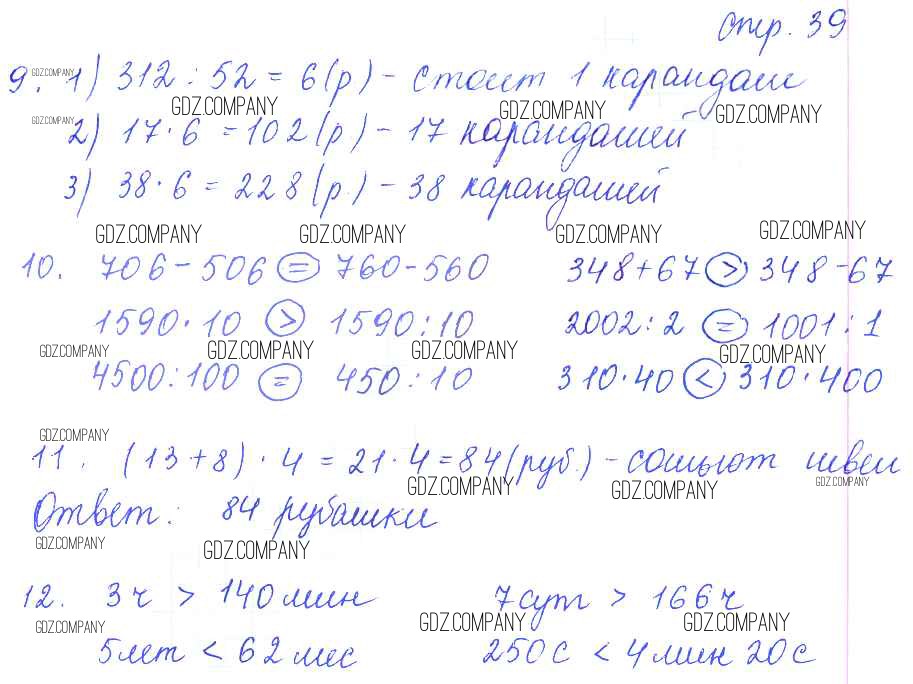 стр. 39
9. GDZ.COMPANY 1) 312 : 52 = 6 (р) - стоит 1 карандаш
GDZ.COMPANY GDZ.COMPANY GDZ.COMPANY
GDZ.COMPANY 2) 17 · 6 = 102 (р) - 17 карандашей
3) 38 · 6 = 228 (р.) - 38 карандашей
GDZ.COMPANY GDZ.COMPANY GDZ.COMPANY GDZ.COMPANY
10. 706 - 506 = 760 - 560 348 + 67 > 348 - 67
1590 · 10 > 1590 : 10 2002 : 2 = 1001 : 1
GDZ.COMPANY GDZ.COMPANY GDZ.COMPANY GDZ.COMPANY
4500 : 100 = 450 : 10 310 · 40 < 310 · 400
GDZ.COMPANY
11. (13 + 8) · 4 = 21 · 4 = 84 (руб.) - сошьют швеи
GDZ.COMPANY GDZ.COMPANY GDZ.COMPANY
Ответ: 84 рубашки
GDZ.COMPANY GDZ.COMPANY
12. 3 ч > 140 мин 7 сут > 166 ч
GDZ.COMPANY GDZ.COMPANY GDZ.COMPANY
5 лет < 62 мес 250 с < 4 мин 20 с